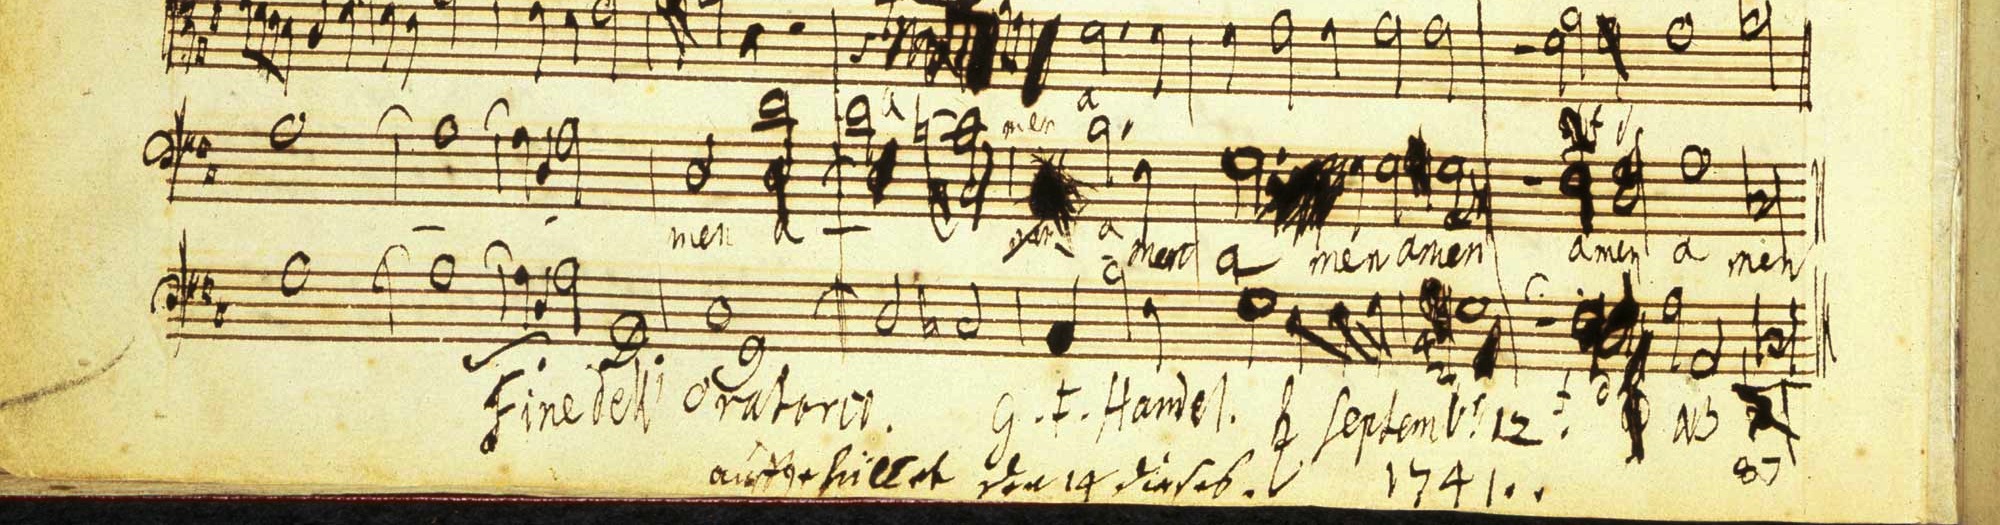 a men a
men a men a men a men amen amen a men
Fine dell' Oratorio. G. F. Handel. ♄ Septembr. 12
ausgefüllet den 14 dieses. 1741..